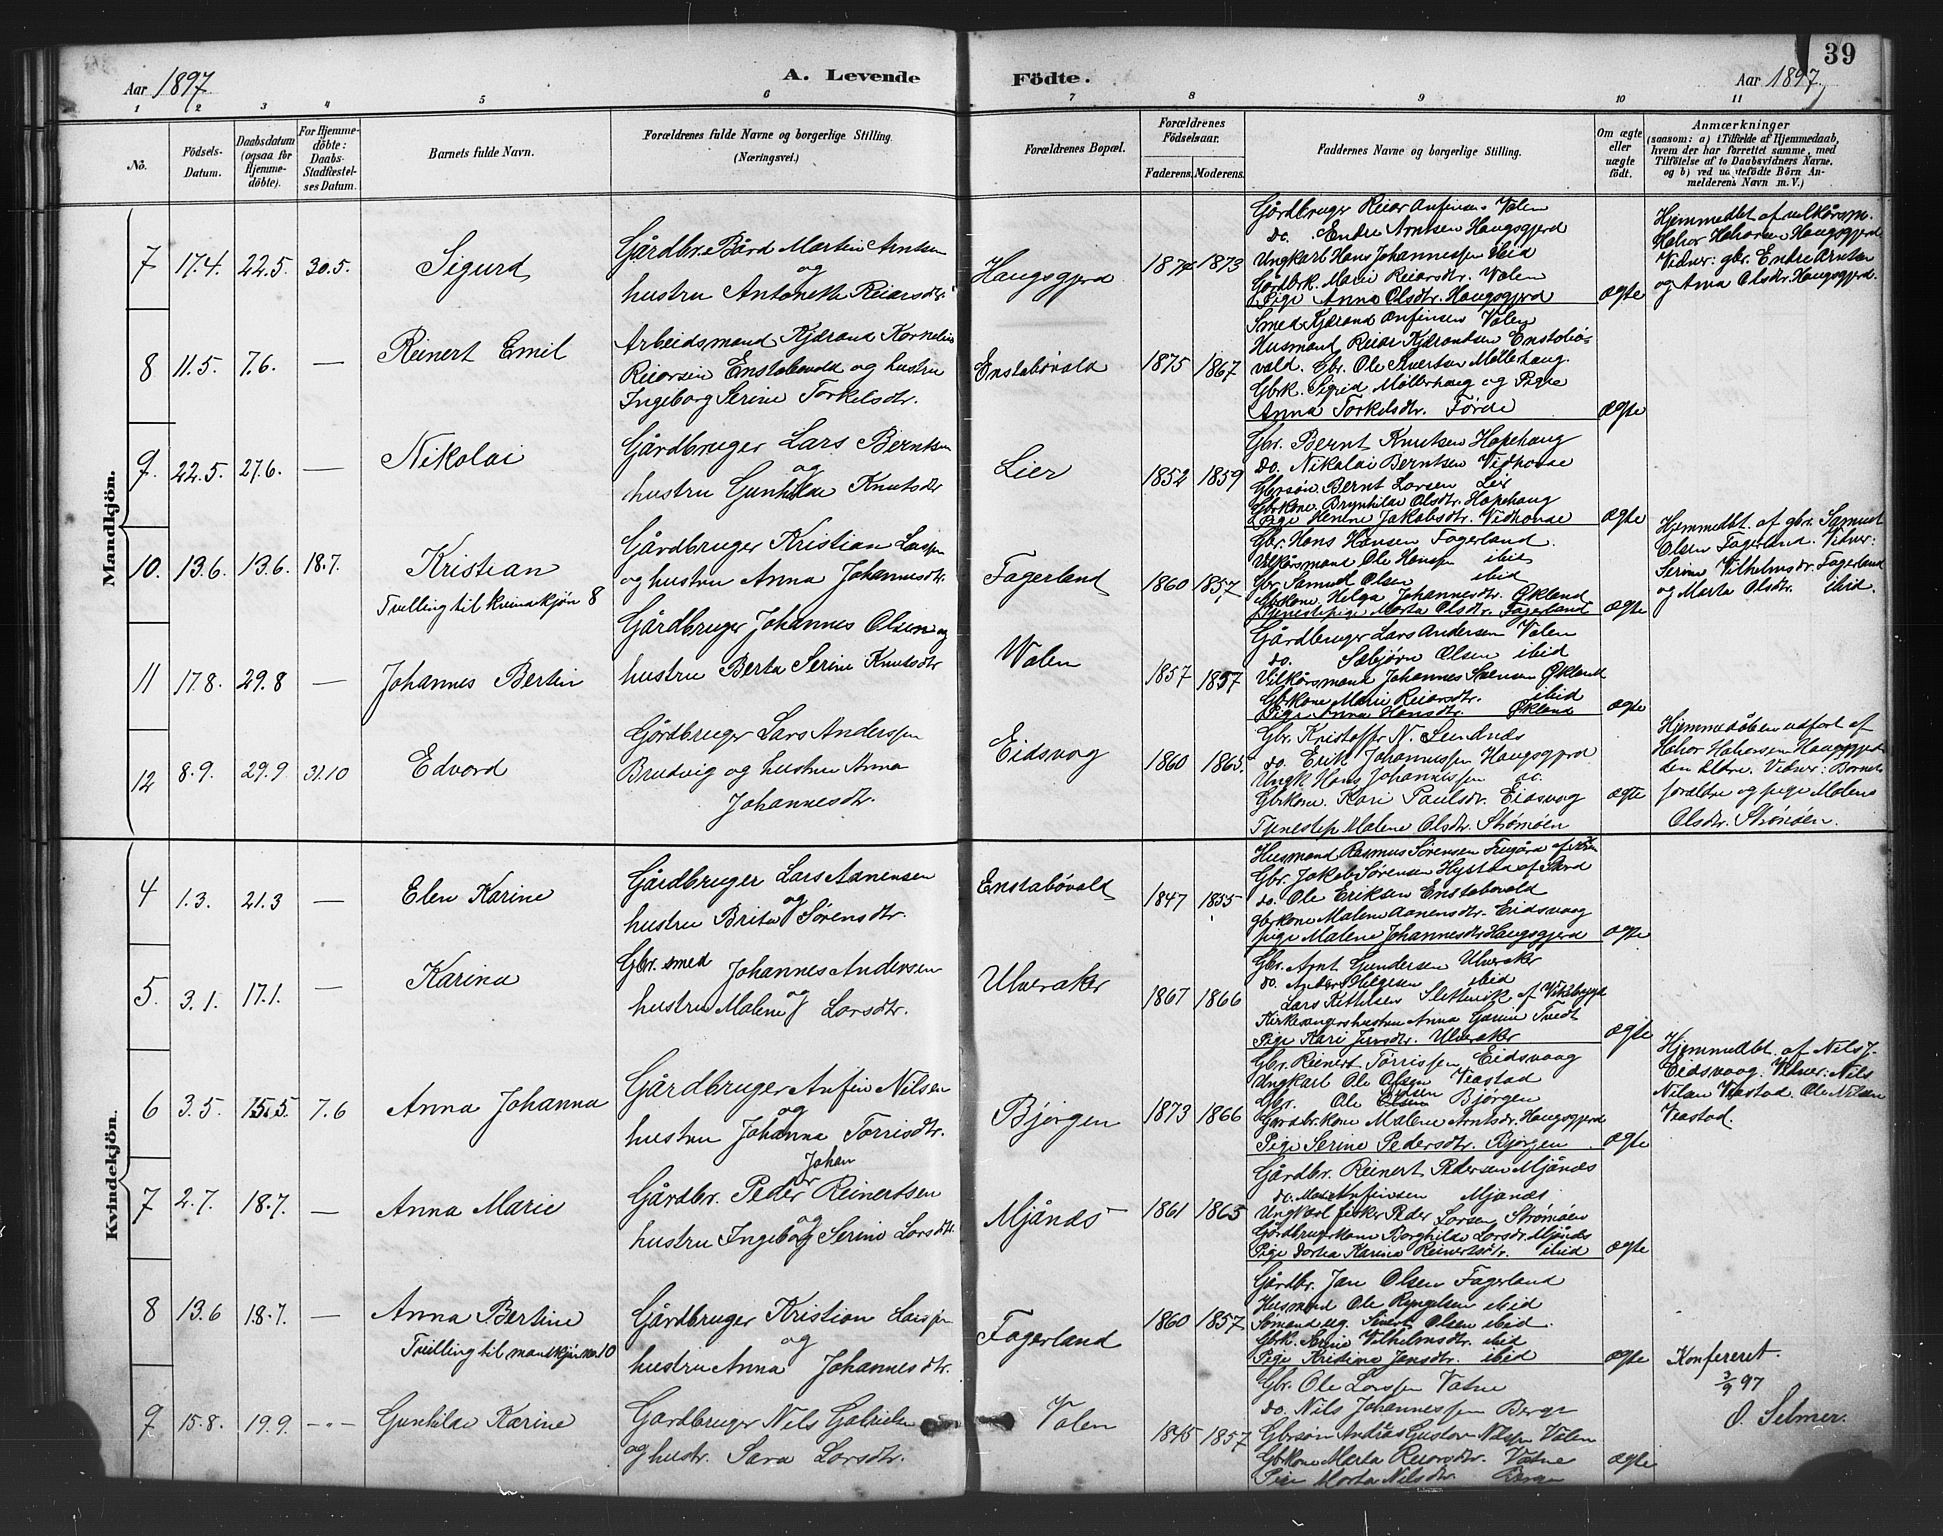 39
Aar 1897
A. Levende Födte.
Aar 1897
1 2 3 4 5 6 7 8 9 10 11
No.
Födsels-
Datum.
Daabsdatum
(ogsaa for
Hjemme-
döbte).
For Hjemme-
döbte:
Daabs-
Stadfæstel-
ses Datum.
Barnets fulde Navn.
Forældrenes fulde Navne og borgerlige Stilling.
(Næringsvei.)
Forældrenes Bopæl.
Forældrenes
Födselsaar.
Faderens. Moderens.
Faddernes Navne og borgerlige Stilling.
Om ægte
eller
uægte
födt.
Anmærkninger
(saasom: a) i Tilfælde af Hjemmedaab,
hvem der har forrettet samme, med
Tilföielse af to Daabsvidners Navne,
og b) ved uægtefödte Börn An-
melderens Navn m. V.)
Mandkjön.
7 17.4. 22.5. 30.5. Sigurd
Gårdbr. Bård Martin Arntsen
og
hustru Antonette Reiarsdtr.
Haugsgjerd
1874 1873
Gårdbruger Reiar Anfinsen Valen
do. Endre Arntsen Haugsgjerd
Ungkarl Hans Johannessen ibid
Gårdbrk. Mari Reiarsdtr. Valen
Pige Anna Olsdtr. Haugsgjerd
ægte
Hjemmedbt. af vilkårsm.
Halvor Halvorsen Haugsgjerd
Vidner: gbr. Endre Arntsen
og Anna Olsdtr. Haugsgjerd.
8 11.5. 7.6. — Reinert Emil
Arbeidsmand Kjærand Kornelius
Reiarsen Enstabøvold og hustru
Ingeborg Serine Torkelsdtr.
Enstabøvald
1875 1867
Smed Kjærand Anfinsen Valen
Husmand Reiar Kjærandsen Enstabø-
vald. Gbr. Ole Sivertsen Møllehaug.
Gbrk. Sigrid Møllerhaug og Pige
Anna Torkelsdtr. Førde
ægte
9. 22.5. 27.6. — Nikolai
Gårdbruger Lars Berntsen
og
hustru Gunhilde Knutsdtr
Lier
1852 1859
Gbr. Bernt Knutsen Hopehaug
do. Nikolai Berntsen Vidhovde
Gbrsøn Bernt Larsen Lier
Gbrkone Brynhilde Olsdtr. Hopehaug
Pige Jakobsdtr. Vidhovde
ægte
10. 13.6. 13.6. 18.7. Kristian
Tvilling til kvindekjøn 8
Gårdbruger Kristian Larssen
og hustru Anna Johannesdtr
Fagerland
1860 1857
Gbr. Hans Hansen Fagerland.
Vilkårsmand Ole Hanssen ibid
Gbr. Samuel Olsen ibid
Gbrkone Helga Johannesdtr. Økland
Tjenestepige Marta Olsdtr. Fagerland
ægte
Hjemmedbt. af gbr. Samuel
Olsen Fagerland. Vidner:
Serine Vilhelmsdr. Fagerland
og Marta Olsdtr. ibid.
11 17.8. 29.8 — Johannes Bertin
Gårdbruger Johannes Olsen og
hustru Berta Serine Knutsdtr
Valen
1857 1857
Gårdbruger Lars Andersen Valen
do. Sæbjørn Olsen ibid
Vilkårsmand Johannes Økland
Gbrkone Mari Reiarsdtr. ibid
Pige Anna Hansdtr Økland
ægte
12 8.9. 29.9 31.10 Edvard
Gårdbruger Lars Anderssen
Brudvig og hustru Anna
Johannesdtr.
Eidsvag
1860 1865.
Gbr. Kristoffer N. Sundnæs
do. Erik Johannessen Haugsgjerd
Ungk. Hans Johannessen do.
Gbrkone. Kari Paulsdtr. Eidsvag
Tjenestep. Malene Olsdtr. Strømøen
ægte
Hjemmedåben udført af
Halvor Halvorsen Haugsgjerd
den ældre. Vidner: Barnets
forældre og pige Malene
Olsdtr. Strømøen.
Kvindekjön.
4 1.3. 21.3 — Elen Karine
Gårdbruger Lars Aanensen
og
hustru Brita Sørensdtr.
Enstabøvald
1847 1855
Husmand Rasmus Sørensen
Gbr. Jakob Sørensen Hystad af Stord
do. Ole Eriksen Enstabøvald
gbrkone Malene Aanensdtr. Eidsvaag
pige Malene Johannesdtr Haugsgjerd
ægte
5. 3.1. 17.1. — Karina
Gbr. smed Johannes Andersen
og
hustru Malene Larsdtr.
Ulveraker
1867 1866
Gbr. Arnt Gundersen Ulveraker
do. Anders Helgesen ibid
Lars Kittelsen af Vikebygd
Kirkesangershustru Anna Tvedt
Pige Kari Ulveraker
ægte
6 3.5. 15.5. 7.6 Anna Johanna
Gårdbruger Anfin Nilsen
og
hustru Johanna Torrisdtr.
Bjørgen
1873 1866
Gbr. Reinert Tørrissen Eidsvaag
Ungkarl Ole Olsen Veastad
Gbr. Ole Olsen Bjørgen
Gardbr.kone Malene Arntsdr. Haugsgjerd
Pige Serine Pedersdtr. Bjørgen
ægte
Hjemmedbt. af Nils J.
Eidsvaag. Vidner: Nils
Nilsen Veastad. Ole Nilsen
Veastad.
7 2.7. 18.7. — Anna Marie
Johan
Gårdbr. Peder Reinertsen
og
hustru Ingeborg Serine Larsdtr.
Mjånæs
1861 1865
Gårdbr. Reinert Pedersen Mjånæs
do. Anfinsen Mjånæs
Ungkarl fisker Peder Larsen Strømøen
Gårdbrugerkone Borghilde Larsdr. Mjånæs
Pige Dortea Karina Reinertsdtr. ibid
ægte
8 13.6 18.7. — Anna Bertine
Tvilling til mandkjøn no. 10
Gårdbruger Kristian Larssen
og
hustru Anna Johannesdtr.
Fagerland
1860 1857
Gårdbr. Jan Olsen Fagerland
Husmand Ole ibid
Sømand ug. Sivert Olsen ibid.
Gbrk. Serine Vilhelmsdtr. ibid
Pige Kristine Jansdtr. ibid
ægte
Konfereret.
3/9 97
O. Selmer.
9 15.8. 19.9. -"- Gunhilde Karine
Gårdbruger Nils Gabrielsen
og hustr. Sara Larsdtr.
Valen
1845 1857
Gbr. Ole Larssen Vatne
do. Nils Johannessen Berge
Gbrsøn Andreas Gustav Nilssen Valen
Gbrkone Marta Reiarsdtr. Vatne
Pige Marta Nilsdtr. Berge
ægte